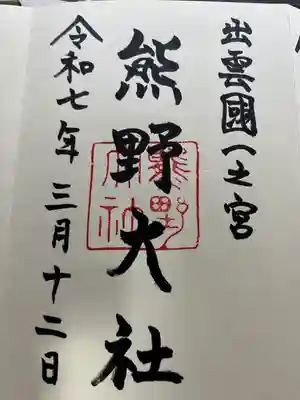 出雲國一之宮
熊野大社
令和七年三月十二日
熊野
大社